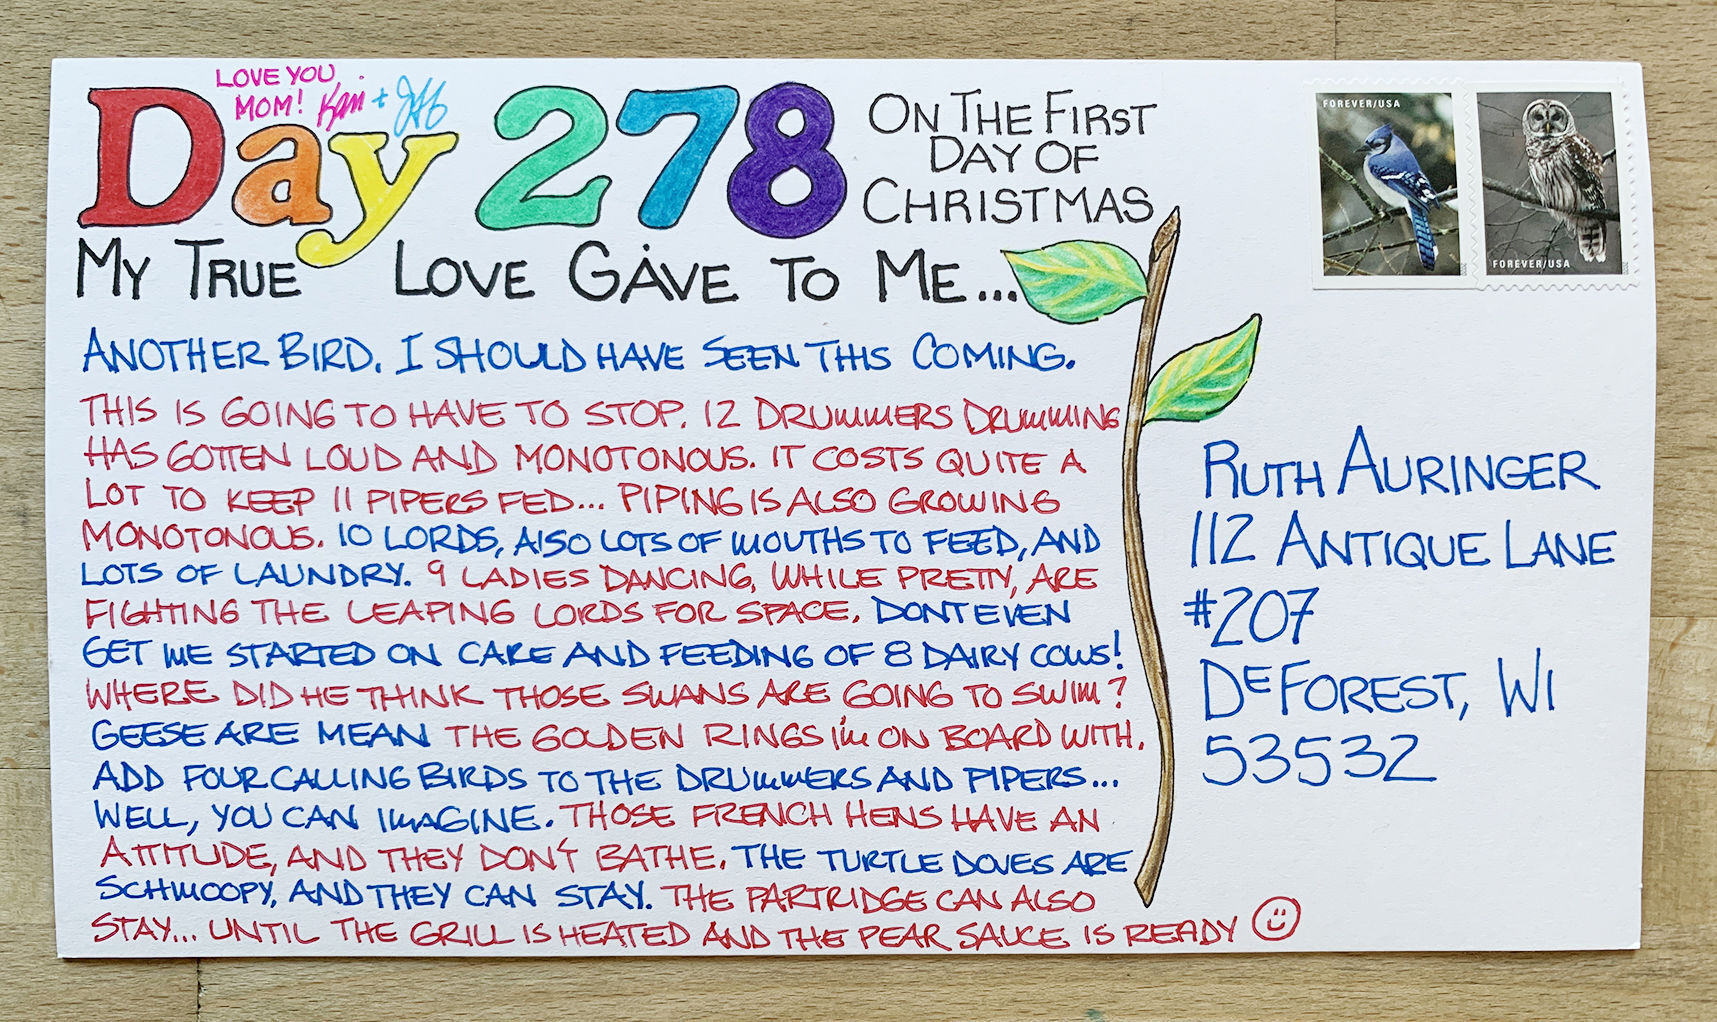 LOVE YOU,
MOM! Kari + Jeff
Day 278
ON THE FIRST
DAY OF
CHRISTMAS
MY TRUE LOVE GAVE TO ME...
ANOTHER BIRD. I SHOULD HAVE SEEN THIS COMING.
THIS IS GOING TO HAVE TO STOP. 12 DRUMMERS DRUMMING
HAS GOTTEN LOUD AND MONOTONOUS. IT COSTS QUITE A
LOT TO KEEP 11 PIPERS FED... PIPING IS ALSO GROWING
MONOTONOUS. 10 LORDS, AlSO LOTS OF MOUTHS TO FEED, AND
LOTS OF LAUNDRY. 9 LADIES DANCING, WHILE PRETTY, ARE
FIGHTING THE LEAPING LORDS FOR SPACE. DONT EVEN
GET ME STARTED ON CARE AND FEEDING OF 8 DAIRY COWS!
WHERE DID HE THINK THOSE SWANS ARE GOING TO SWIM?
GEESE ARE MEAN THE GOLDEN RINGS I'M ON BOARD WITH.
ADD FOUR CALLING BIRDS TO THE DRUMMERS AND PIPERS...
WELL, YOU CAN IMAGINE. THOSE FRENCH HENS HAVE AN
ATTITUDE, AND THEY DON'T BATHE. THE TURTLE DOVES ARE
SCHMOOPY, AND THEY CAN STAY. THE PARTRIDGE CAN AlSO
STAY... UNTIL THE GRILL IS HEATED AND THE PEAR SAUCE IS READY
FOREVER/USA
FOREVER/USA
RUTH AURINGER
112 ANTIQUE LANE
#207
DEFOREST, WI
53532